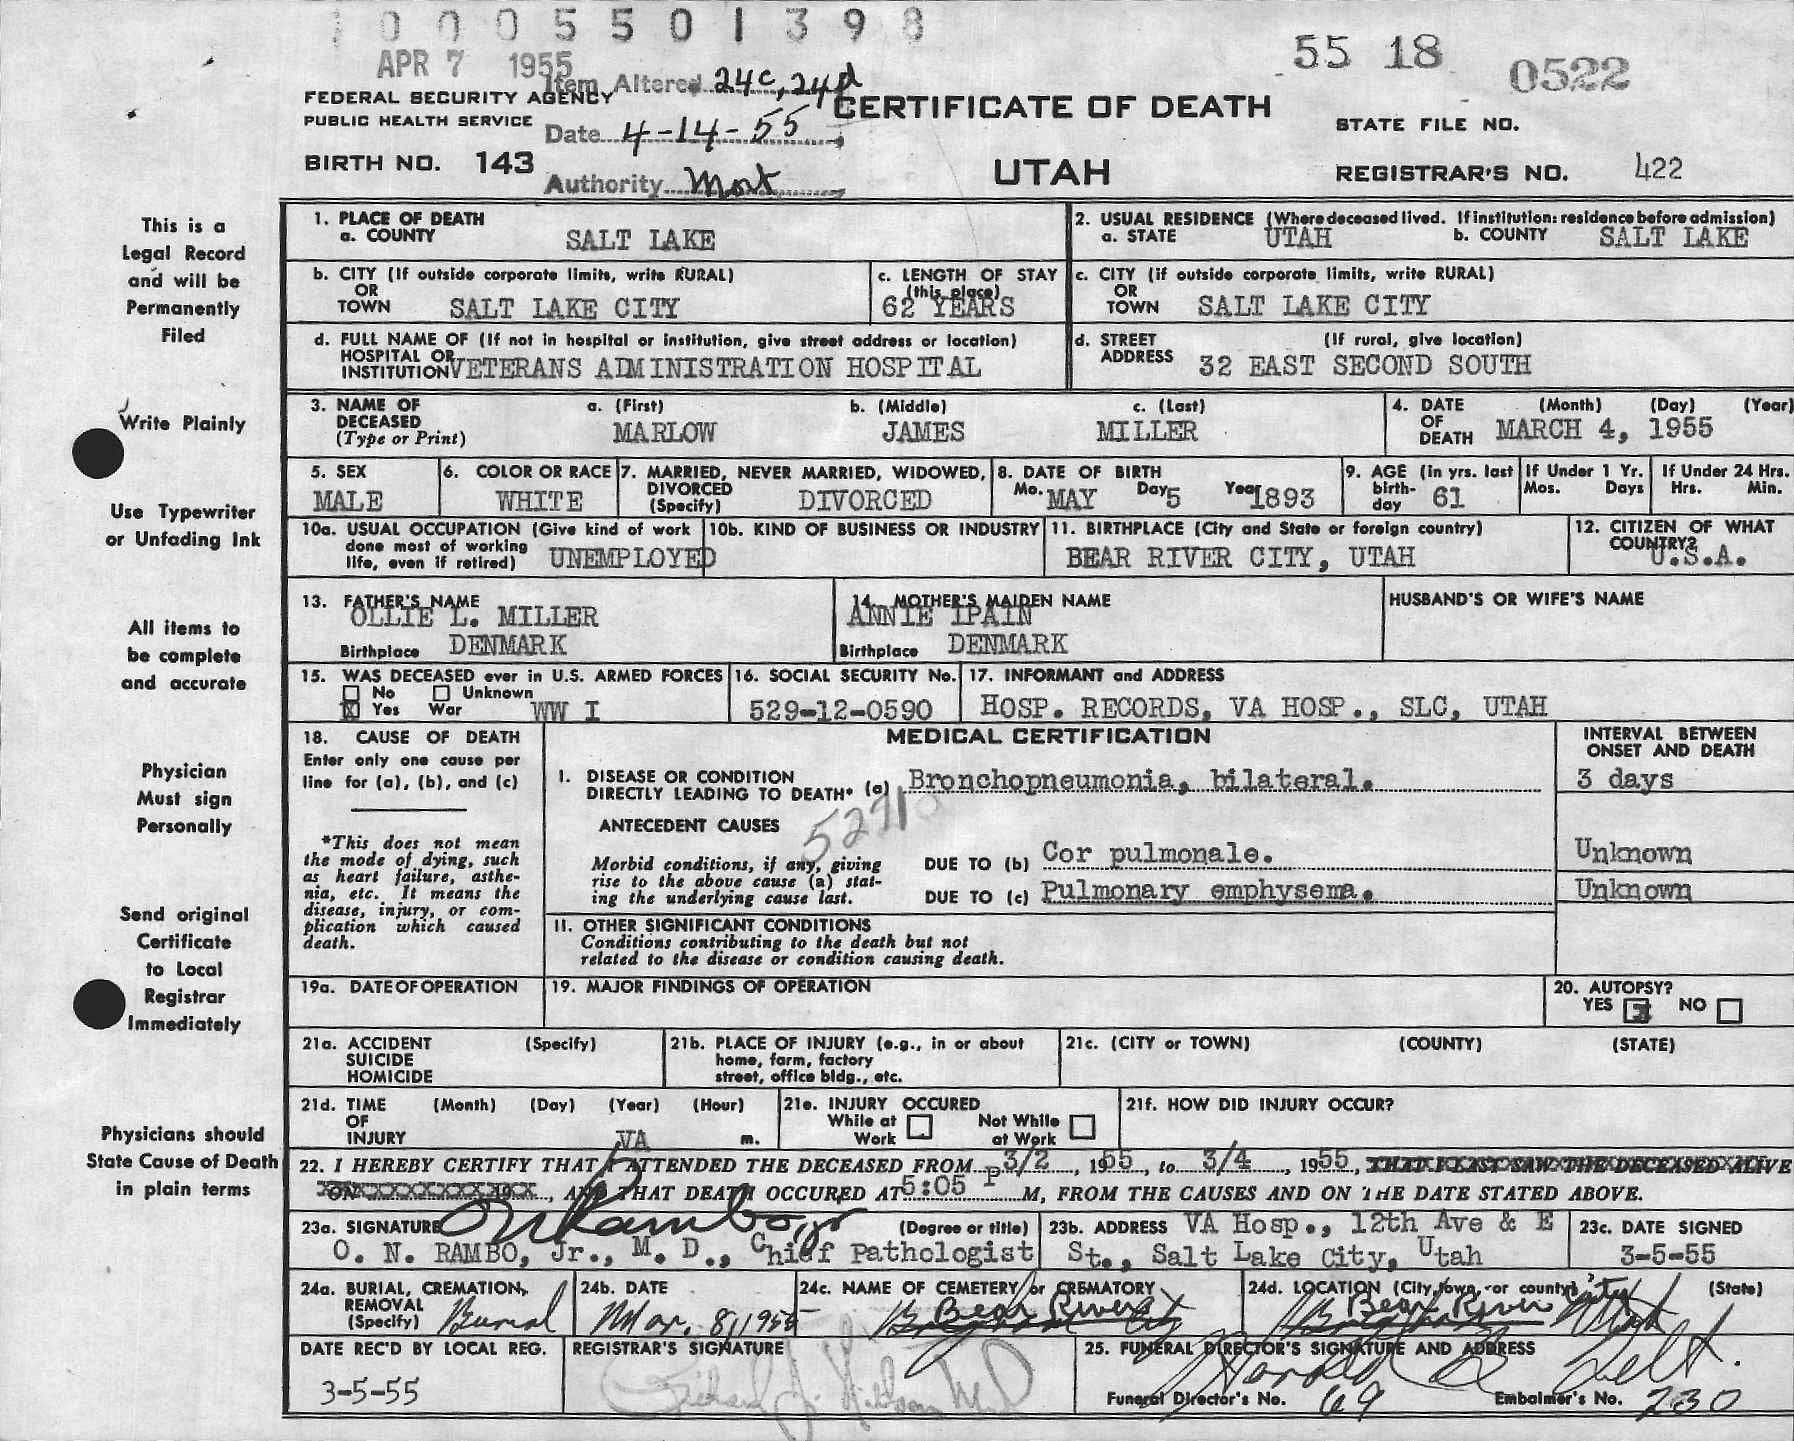 0005501398
APR 7 1955
55 18
0522
Item Altered 24c, 24d
FEDERAL SECURITY AGENCY
PUBLIC HEALTH SERVICE
Date 4-14-55
CERTIFICATE OF DEATH
STATE FILE NO.
BIRTH NO. 143
Authority Mort
UTAH
REGISTRAR'S NO. 422
This is a
Legal Record
and will be
Permanently
Filed
Write Plainly
Use Typewriter
or Unfading Ink
All items to
be complete
and accurate
Physician
Must sign
Personally
Send original
Certificate
to Local
Registrar
Immediately
Physicians should
State Cause of Death
in plain terms
1. PLACE OF DEATH
a. COUNTY SALT LAKE
2. USUAL RESIDENCE (Where deceased lived. If institution: residence before admission)
a. STATE UTAH b. COUNTY SALT LAKE
b. CITY (If outside corporate limits, write RURAL)
OR
TOWN SALT LAKE CITY
c. LENGTH OF STAY
(this place)
62 YEARS
c. CITY (if outside corporate limits, write RURAL)
OR
TOWN SALT LAKE CITY
d. FULL NAME OF (If not in hospital or institution, give street address or location)
HOSPITAL OR
INSTITUTION VETERANS ADMINISTRATION HOSPITAL
d. STREET (If rural, give location)
ADDRESS 32 EAST SECOND SOUTH
3. NAME OF a. (First) b. (Middle) c. (Last)
DECEASED
(Type or Print) MARLOW JAMES MILLER
4. DATE (Month) (Day) (Year)
OF
DEATH MARCH 4, 1955
5. SEX
MALE
6. COLOR OR RACE
WHITE
7. MARRIED, NEVER MARRIED, WIDOWED,
DIVORCED
(Specify) DIVORCED
8. DATE OF BIRTH
Mo. MAY Day 5 Year 1893
9. AGE (in yrs. last
birth-
day 61
If Under 1 Yr.
Mos. Days
If Under 24 Hrs.
Hrs. Min.
10a. USUAL OCCUPATION (Give kind of work
done most of working
life, even if retired) UNEMPLOYED
10b. KIND OF BUSINESS OR INDUSTRY
11. BIRTHPLACE (City and State or foreign country)
BEAR RIVER CITY, UTAH
12. CITIZEN OF WHAT
COUNTRY?
U.S.A.
13. FATHER'S NAME
OLLIE L. MILLER
Birthplace DENMARK
14. MOTHER'S MAIDEN NAME
ANNIE IPAIN
Birthplace DENMARK
HUSBAND'S OR WIFE'S NAME
15. WAS DECEASED ever in U.S. ARMED FORCES
No Unknown
X Yes War WW I
16. SOCIAL SECURITY No.
529-12-0590
17. INFORMANT and ADDRESS
HOSP. RECORDS, VA HOSP., SLC, UTAH
18. CAUSE OF DEATH
Enter only one cause per
line for (a), (b), and (c)
*This does not mean
the mode of dying, such
as heart failure, asthe-
nia, etc. It means the
disease, injury, or com-
plication which caused
death.
MEDICAL CERTIFICATION
INTERVAL BETWEEN
ONSET AND DEATH
I. DISEASE OR CONDITION
DIRECTLY LEADING TO DEATH* (a) Bronchopneumonia, bilateral. 3 days
ANTECEDENT CAUSES
Morbid conditions, if any, giving
rise to the above cause (a) stat-
ing the underlying cause last.
DUE TO (b) Cor pulmonale. Unknown
DUE TO (c) Pulmonary emphysema. Unknown
II. OTHER SIGNIFICANT CONDITIONS
Conditions contributing to the death but not
related to the disease or condition causing death.
19a. DATE OF OPERATION
19. MAJOR FINDINGS OF OPERATION
20. AUTOPSY?
YES X NO
21a. ACCIDENT (Specify)
SUICIDE
HOMICIDE
21b. PLACE OF INJURY (e.g., in or about
home, farm, factory
street, office bldg., etc.
21c. (CITY or TOWN) (COUNTY) (STATE)
21d. TIME (Month) (Day) (Year) (Hour)
OF
INJURY m.
21e. INJURY OCCURED
While at Not While
Work at Work
21f. HOW DID INJURY OCCUR?
VA
22. I HEREBY CERTIFY THAT I ATTENDED THE DECEASED FROM 3/2, 1955, to 3/4, 1955, THAT I LAST SAW THE DECEASED ALIVE
ON 19, AND THAT DEATH OCCURED AT 5:05 P M, FROM THE CAUSES AND ON THE DATE STATED ABOVE.
23a. SIGNATURE ON Rambo, Jr (Degree or title)
O. N. RAMBO, Jr., M. D., Chief Pathologist
23b. ADDRESS VA Hosp., 12th Ave & E
St., Salt Lake City, Utah
23c. DATE SIGNED
3-5-55
24a. BURIAL, CREMATION,
REMOVAL
(Specify) Burial
24b. DATE
Mar. 8, 1955
24c. NAME OF CEMETERY or CREMATORY
Bear River City
24d. LOCATION (City, town, or county) (State)
Bear River City Utah
DATE REC'D BY LOCAL REG.
3-5-55
REGISTRAR'S SIGNATURE
25. FUNERAL DIRECTOR'S SIGNATURE AND ADDRESS
Harold Felt.
Funeral Director's No. 69 Embalmer's No. 230